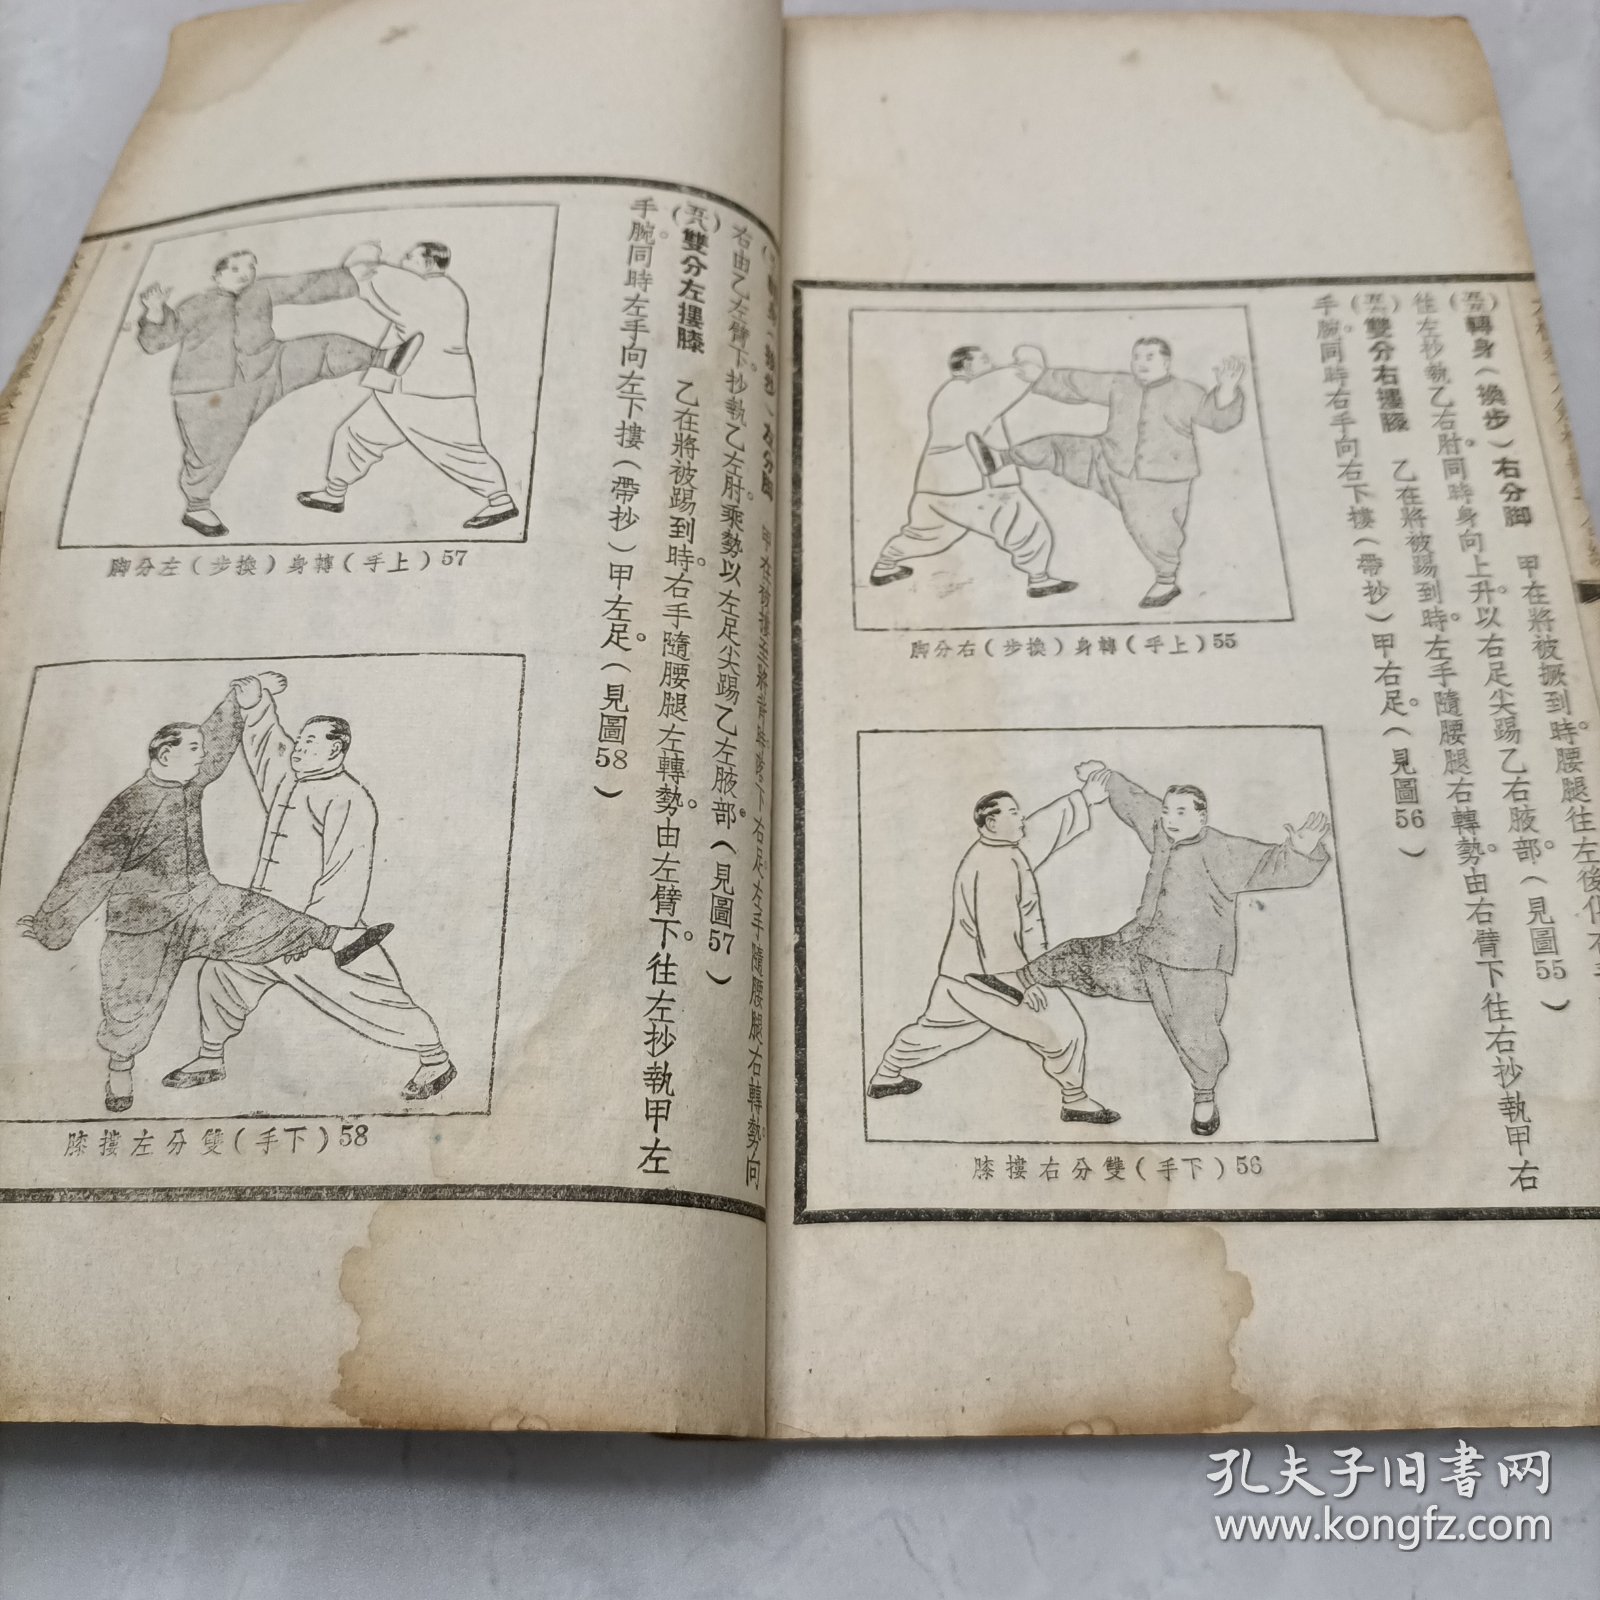 (五五)轉身(換步)右分脚　甲在將被撅到時。腰腿往左後
往左抄執乙右肘。同時身向上升。以右足尖踢乙右腋部。(見圖55)
(五六)雙分右摟膝　乙在將被踢到時。左手隨腰腿右轉勢。由右臂下往右抄執甲右
手腕。同時右手向右下摟(帶抄)甲右足。(見圖56)
脚分右(步換)身轉(手上)55
膝摟右分雙(手下)56
左分脚
右足左手隨腰腿右轉勢。向
右由乙左臂下。抄執乙左肘。乘勢以左足尖踢乙左腋部。(見圖57)
(五八)雙分左摟膝　乙在將被踢到時。右手隨腰腿左轉勢。由左臂下。往左抄執甲左
手腕。同時左手向左下摟(帶抄)甲左足。(見圖58)
脚分左(步換)身轉(手上)57
膝摟左分雙(手下)58
孔夫子旧书网
www.kongfz.com